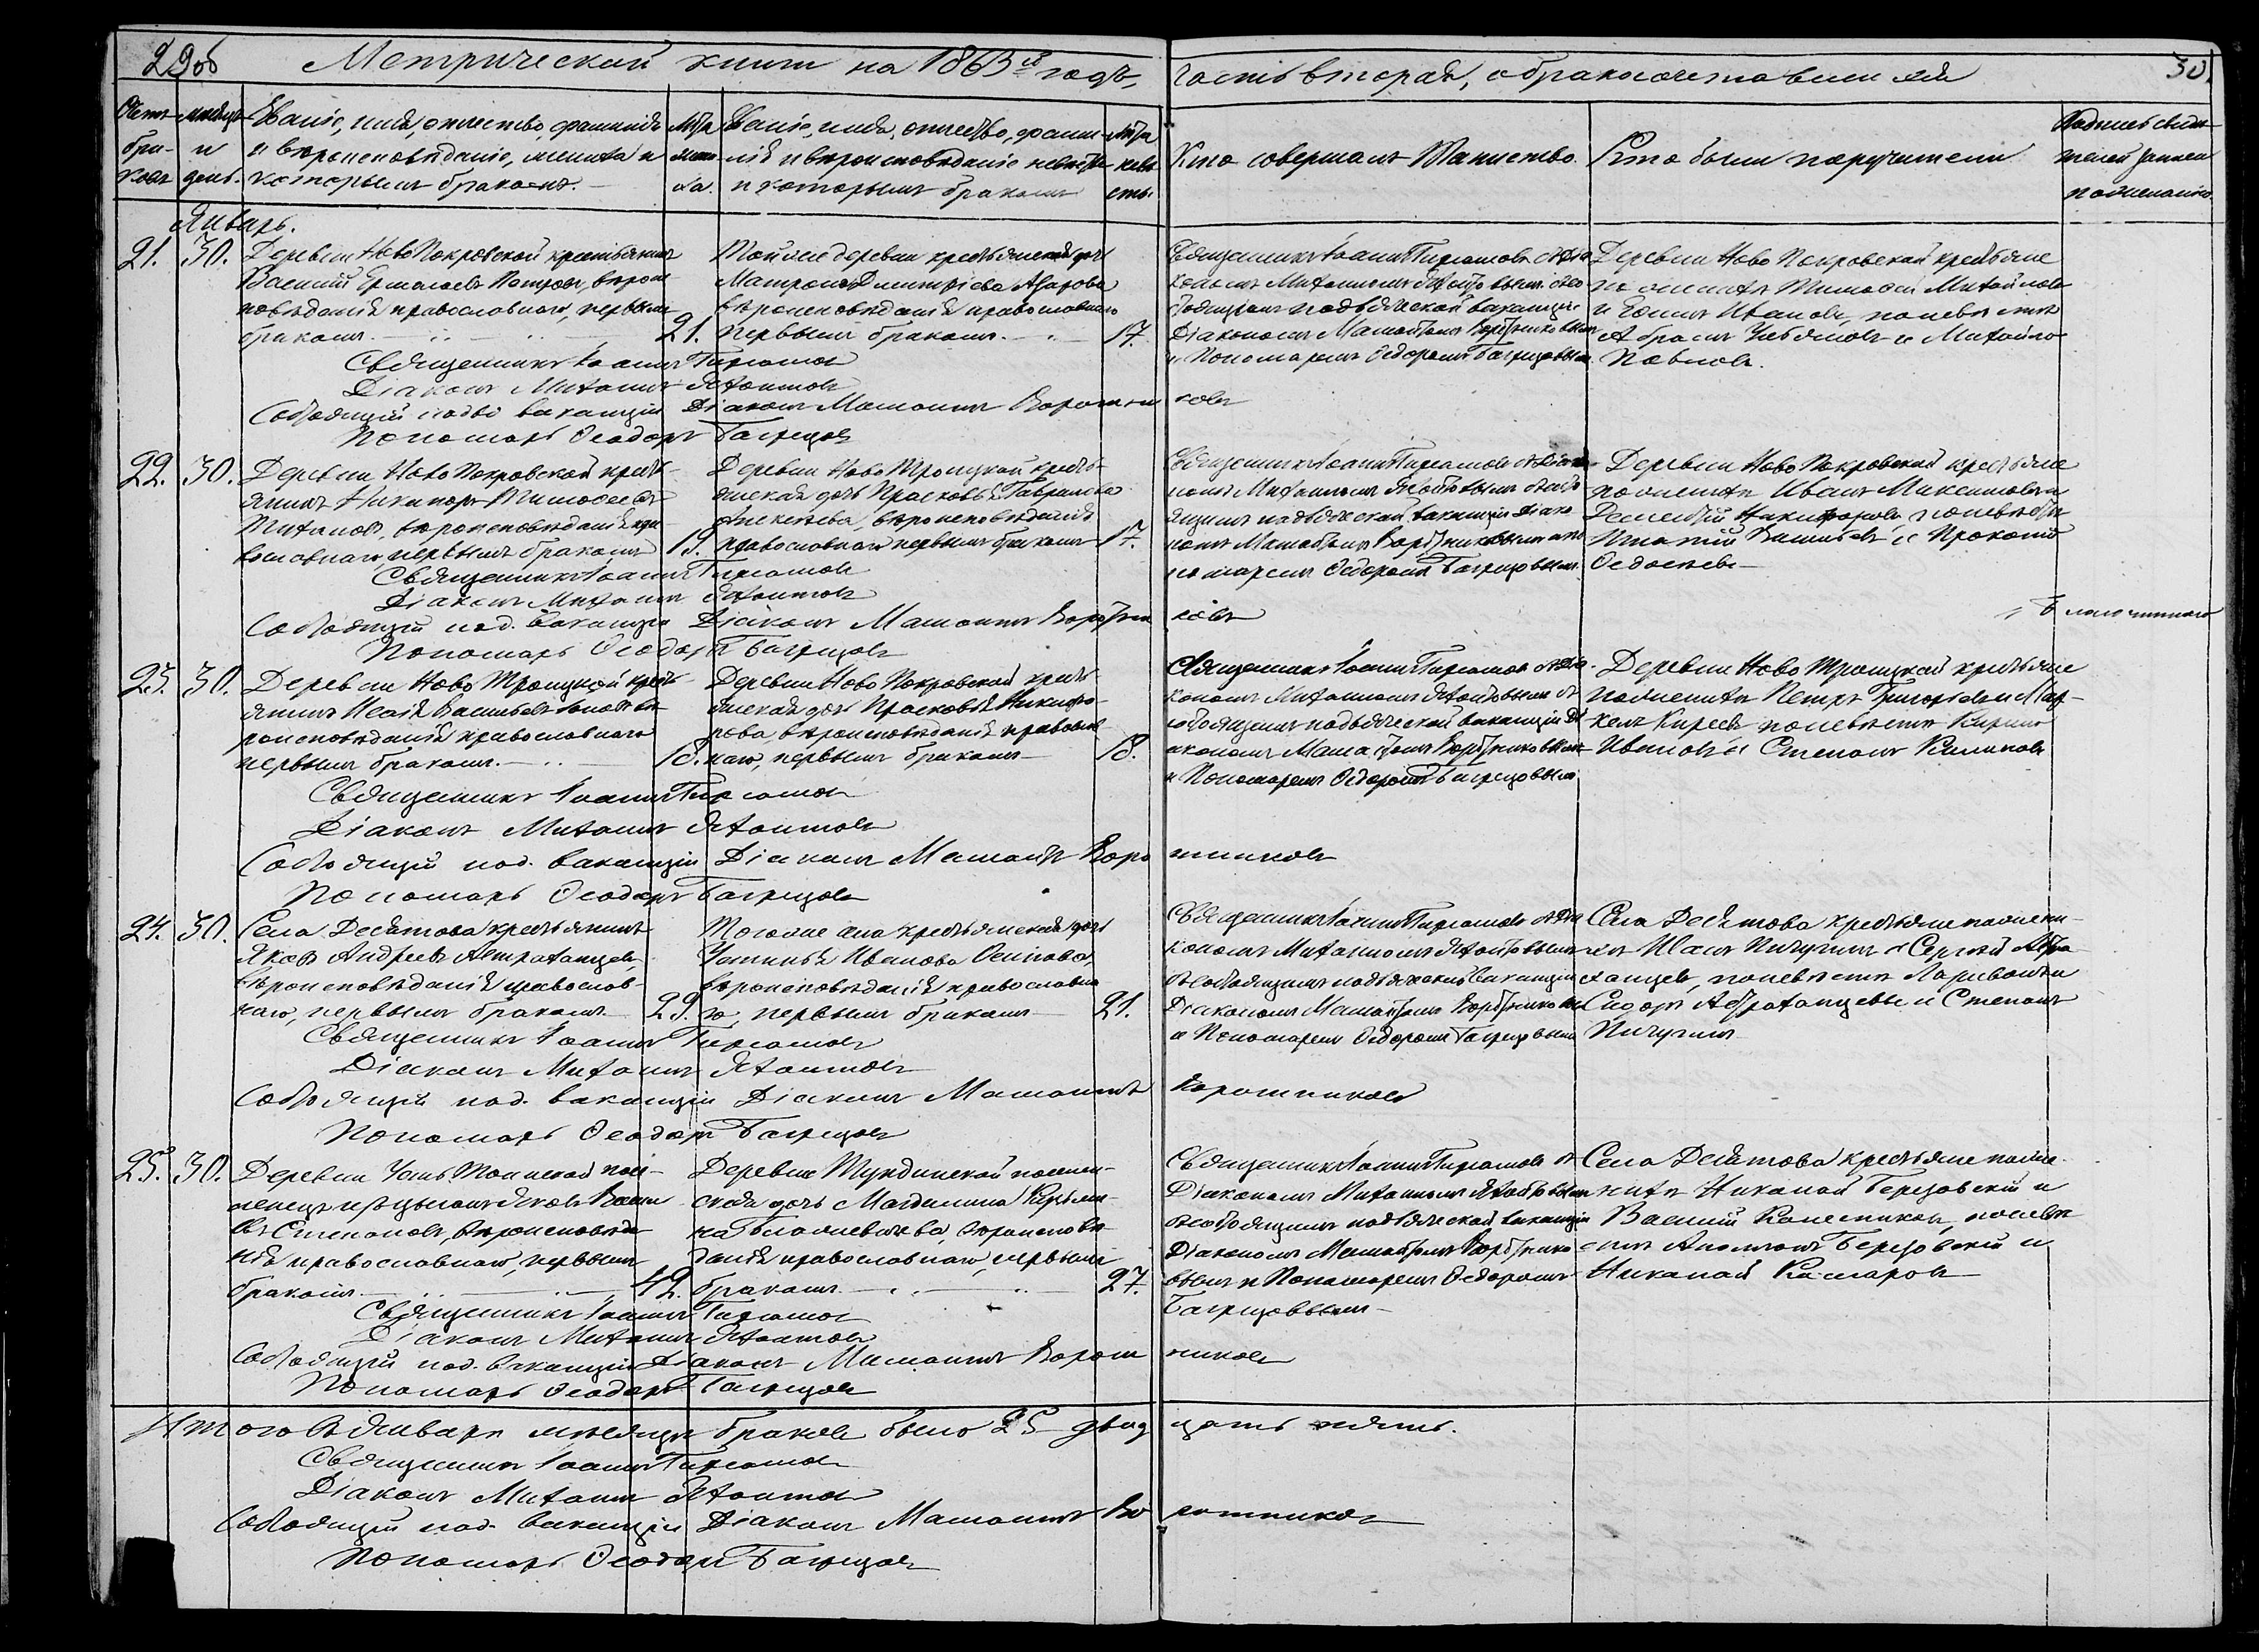 29об Метрической книги на 1863й годъ, часть вторая, о бракосочетавшихся 30.
Счетъ браковъ
мѣсяцъ и день.
Званіе, имя, отчество, фамилія и вѣроисповѣданіе жениха и которымъ бракомъ.
Лѣта жениха.
Званіе, имя, отчество, фамилія и вѣроисповѣданіе невѣсты и которымъ бракомъ
Лѣта невѣсты.
Кто совершалъ Таинство.
Кто были поручители
Подпись свидѣтелей записи по желанію.
Январь.
21. 30.
Деревни Ново Покровской крестьянинъ
Василий Ермолаевъ Петровъ, вѣроис
повѣданія православнаго, первымъ
бракомъ. 21.
Той же деревни крестьянская дочь
Матрона Димитріева Азарова
вѣроисповѣданія православнаго
первымъ бракомъ. 17.
Священникъ Іоаннъ съ Діа
кономъ Михаиломъ и со
стоящимъ на дьяческой вакансіи
Діакономъ Воротниковымъ
и Пономаремъ Ѳедоромъ Багрецовымъ
Деревни Ново Покровской крестьяне
по женихѣ Тимофей Михайловъ
и Ефимъ Ивановъ, по невѣстѣ
Абрамъ и Михайло
Павловъ.
Священникъ Іоаннъ
Діаконъ Михаилъ
Состоящий на дьяч. вакансіи Діаконъ Воротниковъ
Пономарь Ѳеодоръ Багрецовъ
22. 30.
Деревни Ново Покровской кресть
янинъ Никифоръ Тимофеевъ
вѣроисповѣданія пра
вославнаго первымъ бракомъ 19.
Деревни Ново Троицкой кресть
янская дочь Прасковья Гаврилова
Алексѣева, вѣроисповѣданія
православнаго первымъ бракомъ 17.
Священникъ Іоаннъ съ Діа
кономъ Михаиломъ и состо
ящимъ на дьяческой вакансіи Діако
номъ Воротниковымъ и по
номаремъ Ѳедоромъ Багрецовымъ.
Деревни Ново Покровской крестьяне
по женихѣ Иванъ Максимовъ и
Никифоровъ, по невѣстѣ
Игнатий Васильевъ и Прокопій
Федосѣевъ
Священникъ Іоаннъ
Діаконъ Михаилъ
Состоящий на д. вакансіи Діаконъ Воротниковъ
Пономарь Ѳеодоръ Багрецовъ
Благочинного
23. 30.
Деревни Ново Троицкой кресть
янинъ Исаія Васильевъ вѣ
роисповѣданія православнаго
первымъ бракомъ. 18.
Деревни Ново Покровской кресть
янская дочь Прасковья Никифо
рова, вѣроисповѣданія православ
наго, первымъ бракомъ 18.
Священникъ Іоаннъ съ Діа
кономъ Михаиломъ и
состоящимъ на дьяческой вакансіи Ді
акономъ Воротниковымъ
и Пономаремъ Ѳедоромъ Багрецовымъ
Деревни Ново Троицкой крестьяне
по женихѣ Петръ Григорьевъ и Мар
келъ Киреевъ по невѣстѣ Кирило
Ивановъ и Степанъ
Священникъ Іоаннъ
Діаконъ Михаилъ
Состоящий на д. вакансіи Діаконъ Воротниковъ
Пономарь Ѳеодоръ Багрецовъ
24. 30.
Села Десятова крестьянинъ
Яковъ Андреевъ Астраханцевъ,
вѣроисповѣданія православ
наго, первымъ бракомъ 29.
Того же села крестьянская дочь
Устинья Иванова Осипова,
вѣроисповѣданія православна
го, первымъ бракомъ 21.
Священникъ Іоаннъ съ Діа
кономъ Михаиломъ
и состоящимъ на дьяческой вакансіи
Діакономъ Воротниковымъ
и Пономаремъ Ѳедоромъ Багрецовымъ
Села Десятова крестьяне по жени
хѣ Иванъ Пичугинъ и Сергѣй Астра
ханцевъ, по невѣстѣ Ларивонъ и
Сидоръ Астраханцевы и Степанъ
Пичугинъ
Священникъ Іоаннъ
Діаконъ Михаилъ
Состоящий на д. вакансіи Діаконъ Воротниковъ
Пономарь Ѳеодоръ Багрецовъ
25. 30.
Деревни посе
ленецъ изъ Яковъ Василь
евъ Степановъ, вѣроисповѣда
нія православнаго, первымъ
бракомъ 42.
Деревни Тундинской поселен
ская дочь Магдалина
вѣроисповѣ
данія православнаго, первымъ
бракомъ 27.
Священникъ Іоаннъ съ
Діакономъ Михаиломъ
и состоящимъ на дьяческой вакансіи
Діакономъ Воротнико
вымъ и Пономаремъ Ѳедоромъ
Багрецовымъ
Села Десятова крестьяне по же
нихѣ Никалай Березовский и
Василий Колесниковъ, по невѣ
стѣ Березовский и
Никалай Комаровъ
Священникъ Іоаннъ
Діаконъ Михаилъ
Состоящий на д. вакансіи Діаконъ Воротниковъ
Пономарь Ѳеодоръ Багрецовъ
Итого въ Январѣ мѣсяцѣ браковъ было 25 двадцать пять.
Священникъ Іоаннъ
Діаконъ Михаилъ
Состоящий на д. вакансіи Діаконъ Воротниковъ
Пономарь Ѳеодоръ Багрецовъ